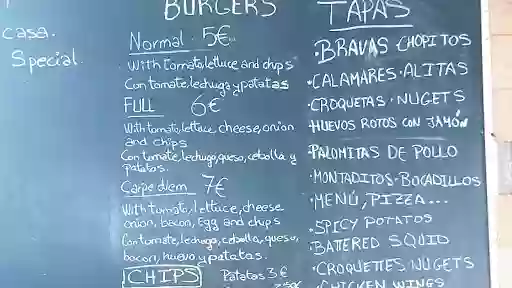 casa.
Special
BURGERS
Normal 5€
With tomato, lettuce and chips
Con tomate, lechuga y patatas
FULL 6€
With tomato, lettuce, cheese, onion
and chips
Con tomate, lechuga, queso, cebolla y
patatas.
Carpe diem 7€
With tomato, lettuce, cheese
onion, bacon, Egg and chips
Con tomate, lechuga, cebolla, queso,
bacon, huevo y patatas.
CHIPS Patatas 3€
TAPAS
·BRAVAS CHOPITOS
·CALAMARES·ALITAS
·CROQUETAS·NUGETS
HUEVOS ROTOS CON JAMÓN
·PALOMITAS DE POLLO
·MONTADITOS·BOCADILLOS
·MENÚ, PIZZA...
·SPICY POTATOS
·BATTERED SQUID
·CROQUETTES NUGETS
CHICKEN WINGS